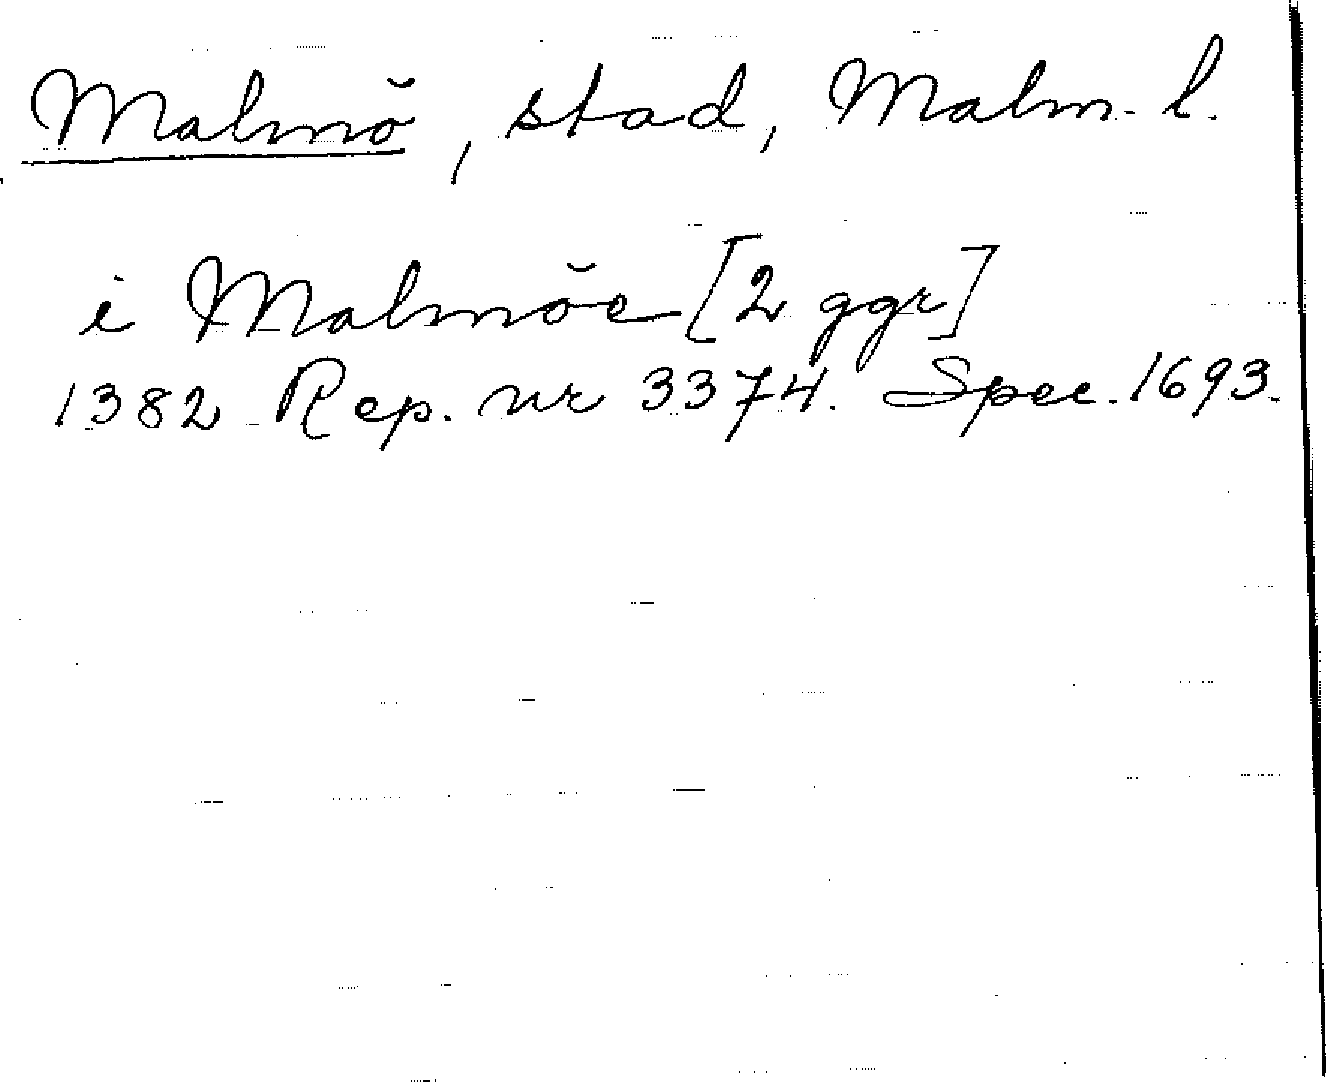 Malmö, stad, Malm. l.
i Malmöe [2 ggr]
1382 Rep. nr 3374. Spec. 1693.